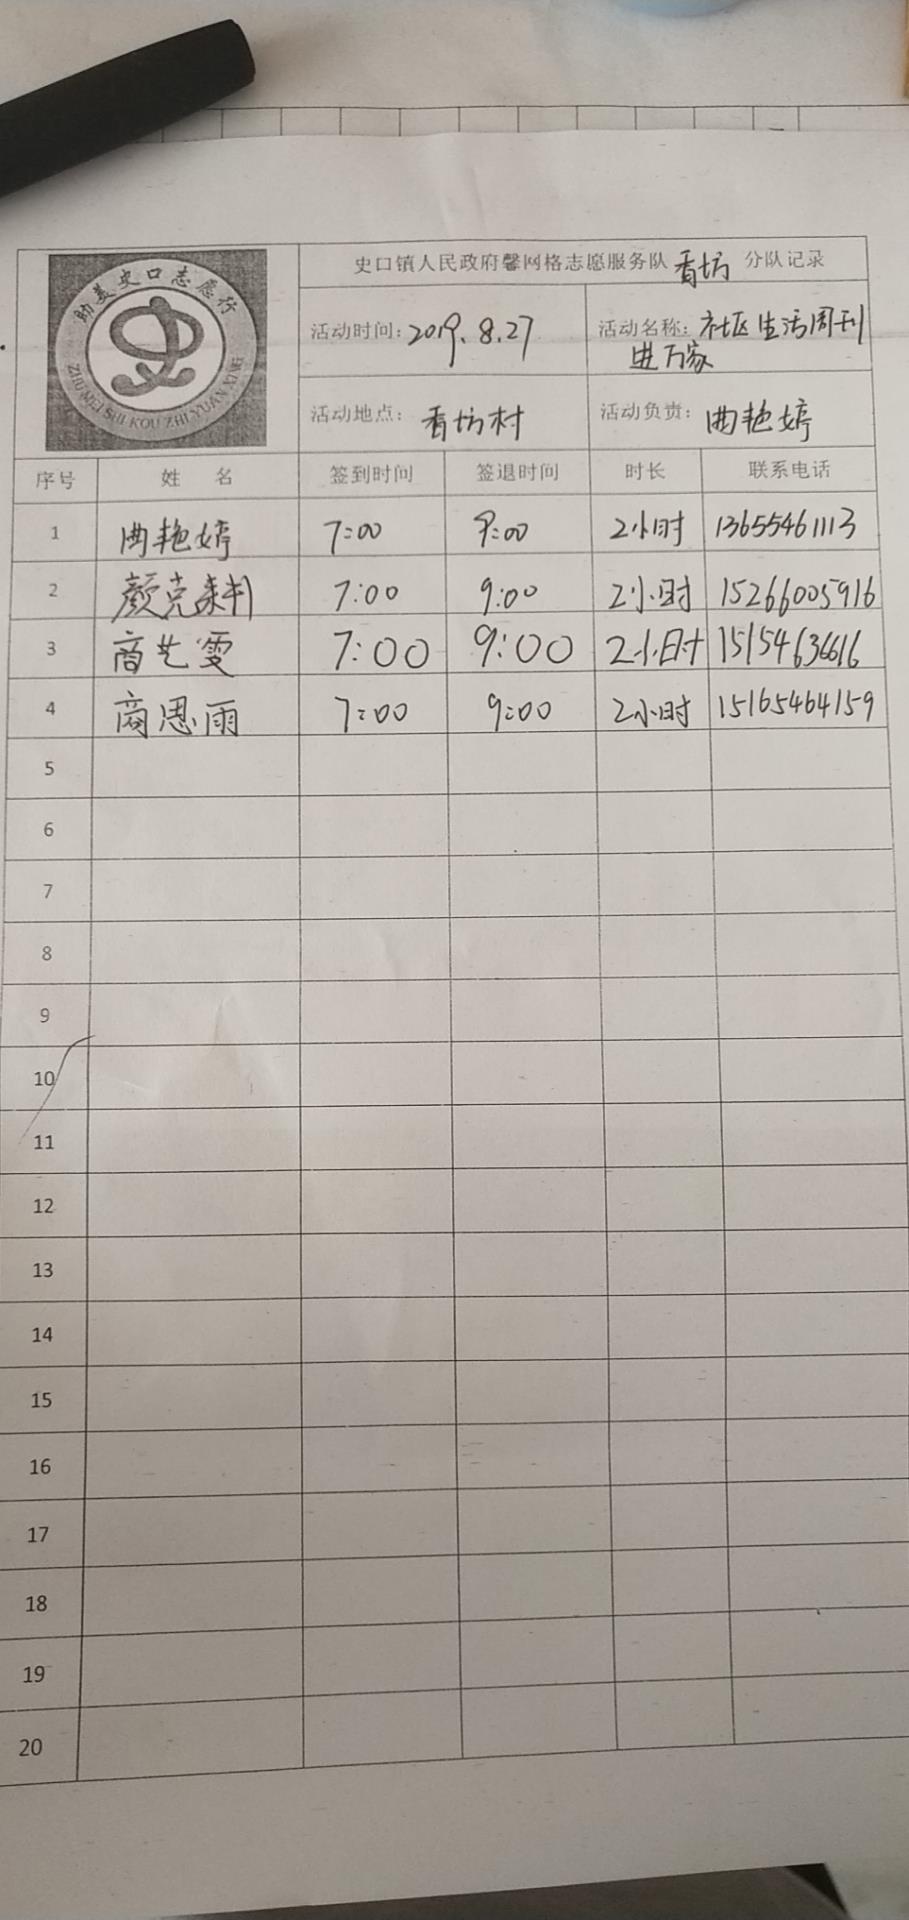 助美史口志愿行
ZHU MEI SHI KOU ZHI YUAN XING
史口镇人民政府馨网格志愿服务队 香坊 分队记录
活动时间：2019.8.27
活动名称：社区生活周刊
进万家
活动地点：香坊村
活动负责：曲艳婷
序号 姓 名 签到时间 签退时间 时长 联系电话
1 曲艳婷 7:00 9:00 2小时 13655461113
2 颜克 7:00 9:00 2小时 15266005916
3 商艺雯 7:00 9:00 2小时 15154636616
4 商恩雨 7:00 9:00 2小时 15165464159
5
6
7
8
9
10
11
12
13
14
15
16
17
18
19
20